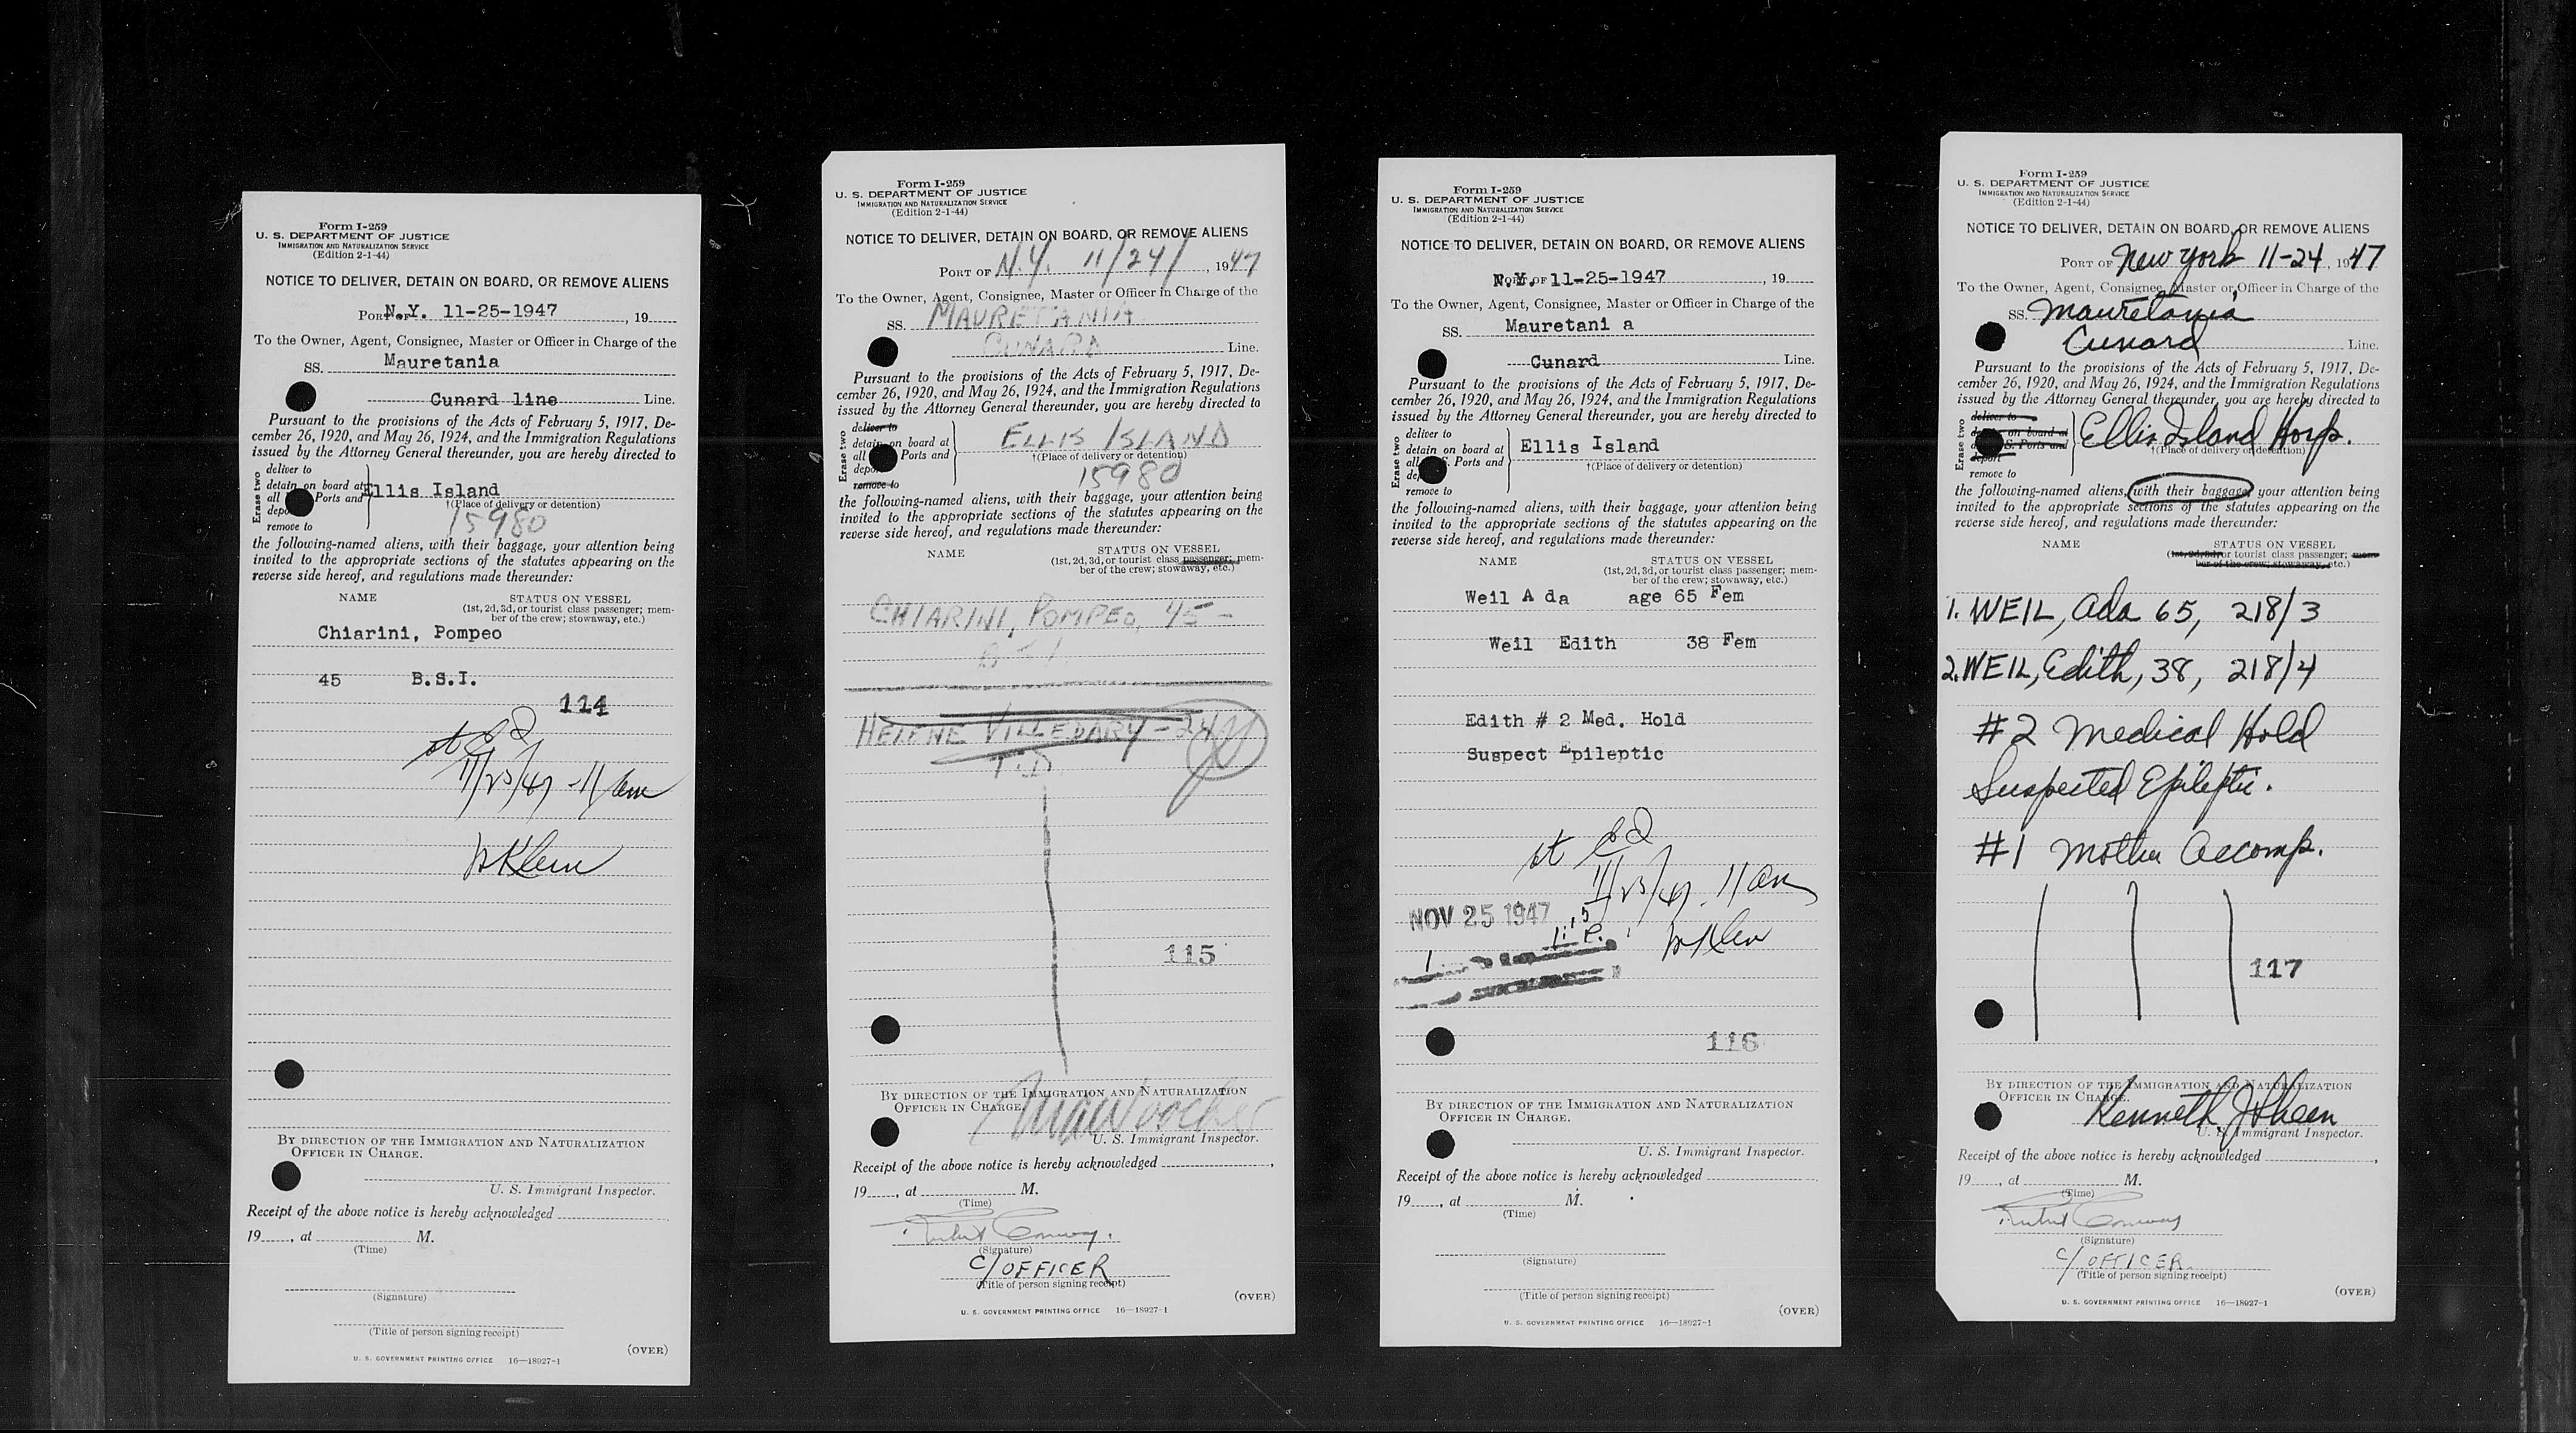 Form I-259
U. S. DEPARTMENT OF JUSTICE
IMMIGRATION AND NATURALIZATION SERVICE
(Edition 2-1-44)
NOTICE TO DELIVER, DETAIN ON BOARD, OR REMOVE ALIENS
PORT OF N.Y. 11-25-1947, 19
To the Owner, Agent, Consignee, Master or Officer in Charge of the
SS. Mauretania
Cunard line Line.
Pursuant to the provisions of the Acts of February 5, 1917, De-
cember 26, 1920, and May 26, 1924, and the Immigration Regulations
issued by the Attorney General thereunder, you are hereby directed to
Erase two
deliver to
detain on board at
all Ports and
depo
remove to
Ellis Island
†(Place of delivery or detention)
15980
the following-named aliens, with their baggage, your attention being
invited to the appropriate sections of the statutes appearing on the
reverse side hereof, and regulations made thereunder:
NAME STATUS ON VESSEL
(1st, 2d, 3d, or tourist class passenger; mem-
ber of the crew; stowaway, etc.)
Chiarini, Pompeo
45 B.S.I.
114
11/25/47 - 11 am
W Klein
BY DIRECTION OF THE IMMIGRATION AND NATURALIZATION
OFFICER IN CHARGE.
U. S. Immigrant Inspector.
Receipt of the above notice is hereby acknowledged
19, at M.
(Time)
(Signature)
(Title of person signing receipt)
(OVER)
U. S. GOVERNMENT PRINTING OFFICE 16—18927-1
Form I-259
U. S. DEPARTMENT OF JUSTICE
IMMIGRATION AND NATURALIZATION SERVICE
(Edition 2-1-44)
NOTICE TO DELIVER, DETAIN ON BOARD, OR REMOVE ALIENS
PORT OF N.Y. 11/24/, 1947
To the Owner, Agent, Consignee, Master or Officer in Charge of the
SS. MAURETANIA
CUNARD Line.
Pursuant to the provisions of the Acts of February 5, 1917, De-
cember 26, 1920, and May 26, 1924, and the Immigration Regulations
issued by the Attorney General thereunder, you are hereby directed to
Erase two
deliver to
detain on board at
all Ports and
depor
remove to
ELLIS ISLAND
†(Place of delivery or detention)
15980
the following-named aliens, with their baggage, your attention being
invited to the appropriate sections of the statutes appearing on the
reverse side hereof, and regulations made thereunder:
NAME STATUS ON VESSEL
(1st, 2d, 3d, or tourist class passenger; mem-
ber of the crew; stowaway, etc.)
CHIARINI, POMPEO, 45 -
BSI
HELENE VILLEDARY - 24
T.D
115
BY DIRECTION OF THE IMMIGRATION AND NATURALIZATION
OFFICER IN CHARGE.
U. S. Immigrant Inspector.
Receipt of the above notice is hereby acknowledged
19, at M.
(Time)
(Signature)
C/OFFICER
(Title of person signing receipt)
(OVER)
U. S. GOVERNMENT PRINTING OFFICE 16—18927-1
Form I-259
U. S. DEPARTMENT OF JUSTICE
IMMIGRATION AND NATURALIZATION SERVICE
(Edition 2-1-44)
NOTICE TO DELIVER, DETAIN ON BOARD, OR REMOVE ALIENS
PORT OF N.Y. 11-25-1947, 19
To the Owner, Agent, Consignee, Master or Officer in Charge of the
SS. Mauretani a
Cunard Line.
Pursuant to the provisions of the Acts of February 5, 1917, De-
cember 26, 1920, and May 26, 1924, and the Immigration Regulations
issued by the Attorney General thereunder, you are hereby directed to
Erase two
deliver to
detain on board at
all S. Ports and
de
remove to
Ellis Island
†(Place of delivery or detention)
the following-named aliens, with their baggage, your attention being
invited to the appropriate sections of the statutes appearing on the
reverse side hereof, and regulations made thereunder:
NAME STATUS ON VESSEL
(1st, 2d, 3d, or tourist class passenger; mem-
ber of the crew; stowaway, etc.)
Weil A da age 65 Fem
Weil Edith 38 Fem
Edith # 2 Med. Hold
Suspect Epileptic
11/25/47. 11 am
NOV 25 1947
W Klein
116
BY DIRECTION OF THE IMMIGRATION AND NATURALIZATION
OFFICER IN CHARGE.
U. S. Immigrant Inspector.
Receipt of the above notice is hereby acknowledged
19, at M.
(Time)
(Signature)
(Title of person signing receipt)
(OVER)
U. S. GOVERNMENT PRINTING OFFICE 16—18927-1
Form I-259
U. S. DEPARTMENT OF JUSTICE
IMMIGRATION AND NATURALIZATION SERVICE
(Edition 2-1-44)
NOTICE TO DELIVER, DETAIN ON BOARD, OR REMOVE ALIENS
PORT OF New York 11-24, 1947
To the Owner, Agent, Consignee, Master or Officer in Charge of the
SS. Mauretania
Cunard Line.
Pursuant to the provisions of the Acts of February 5, 1917, De-
cember 26, 1920, and May 26, 1924, and the Immigration Regulations
issued by the Attorney General thereunder, you are hereby directed to
Erase two
deliver to
on board at
S. Ports and
deport
remove to
Ellis Island Hosp.
†(Place of delivery or detention)
the following-named aliens, with their baggage, your attention being
invited to the appropriate sections of the statutes appearing on the
reverse side hereof, and regulations made thereunder:
NAME STATUS ON VESSEL
(1st, 2d, 3d, or tourist class passenger; mem-
ber of the crew; stowaway, etc.)
1. WEIL, Ada 65, 218/3
2. WEIL, Edith, 38, 218/4
#2 Medical Hold
Suspected Epileptic.
#1 Mother Accomp.
117
BY DIRECTION OF THE IMMIGRATION AND NATURALIZATION
OFFICER IN CHARGE.
Kenneth J. Sheen
U. S. Immigrant Inspector.
Receipt of the above notice is hereby acknowledged
19, at M.
(Time)
(Signature)
C/ OFFICER.
(Title of person signing receipt)
(OVER)
U. S. GOVERNMENT PRINTING OFFICE 16—18927-1